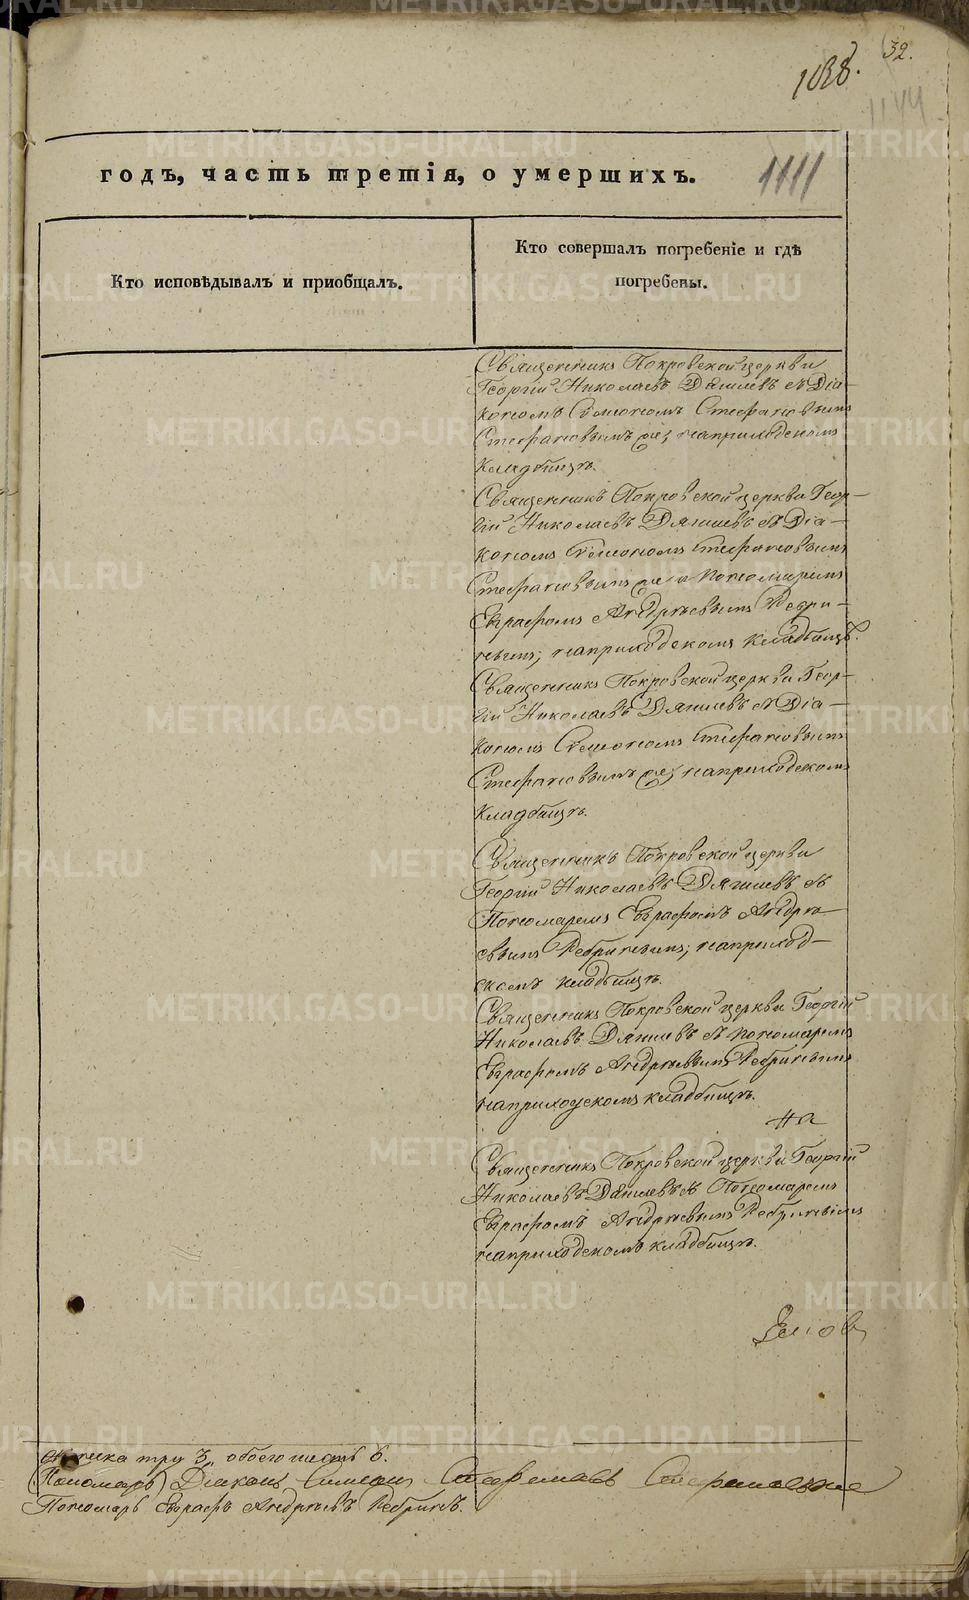 32.
1038.
1144
1111
годъ, часть третія, о умершихъ.
Кто исповѣдывалъ и пріобщалъ.
Кто совершалъ погребеніе и гдѣ
погребены.
Священникъ Покровской церкви
Георгій Николаевъ Дягилевъ съ Діа-
кономъ Сѵмеономъ Стефановымъ
Стефановымъ же; на приходскомъ
кладбищѣ.
Священникъ Покровской церкви Геор-
гій Николаевъ Дягилевъ съ Діа-
кономъ Сѵмеономъ Стефановымъ
Стефановымъ же и пономаремъ
Евграфомъ Андреевымъ
на приходскомъ кладбищѣ.
Священникъ Покровской церкви Геор-
гій Николаевъ Дягилевъ съ Діа-
кономъ Сѵмеономъ Стефановымъ
Стефановымъ же; на приходскомъ
кладбищѣ.
Священникъ Покровской церкви
Георгій Николаевъ Дягилевъ съ
Пономаремъ Евграфомъ Андре-
евымъ на приход-
скомъ кладбищѣ.
Священникъ Покровской церкви Георгій
Николаевъ Дягилевъ съ пономаремъ
Евграфомъ Андреевымъ
на приходскомъ кладбищѣ.
На
Священникъ Покровской церкви Георгій
Николаевъ Дягилевъ съ Пономаремъ
Евграфомъ Андреевымъ
на приходскомъ кладбищѣ.
три 3, обоего шесть 6.
(Пономарь) Діаконъ Симеонъ Стефановъ Стефановыхъ
Пономарь Евграфъ Андреевъ
METRIKI.GASO-URAL.RU